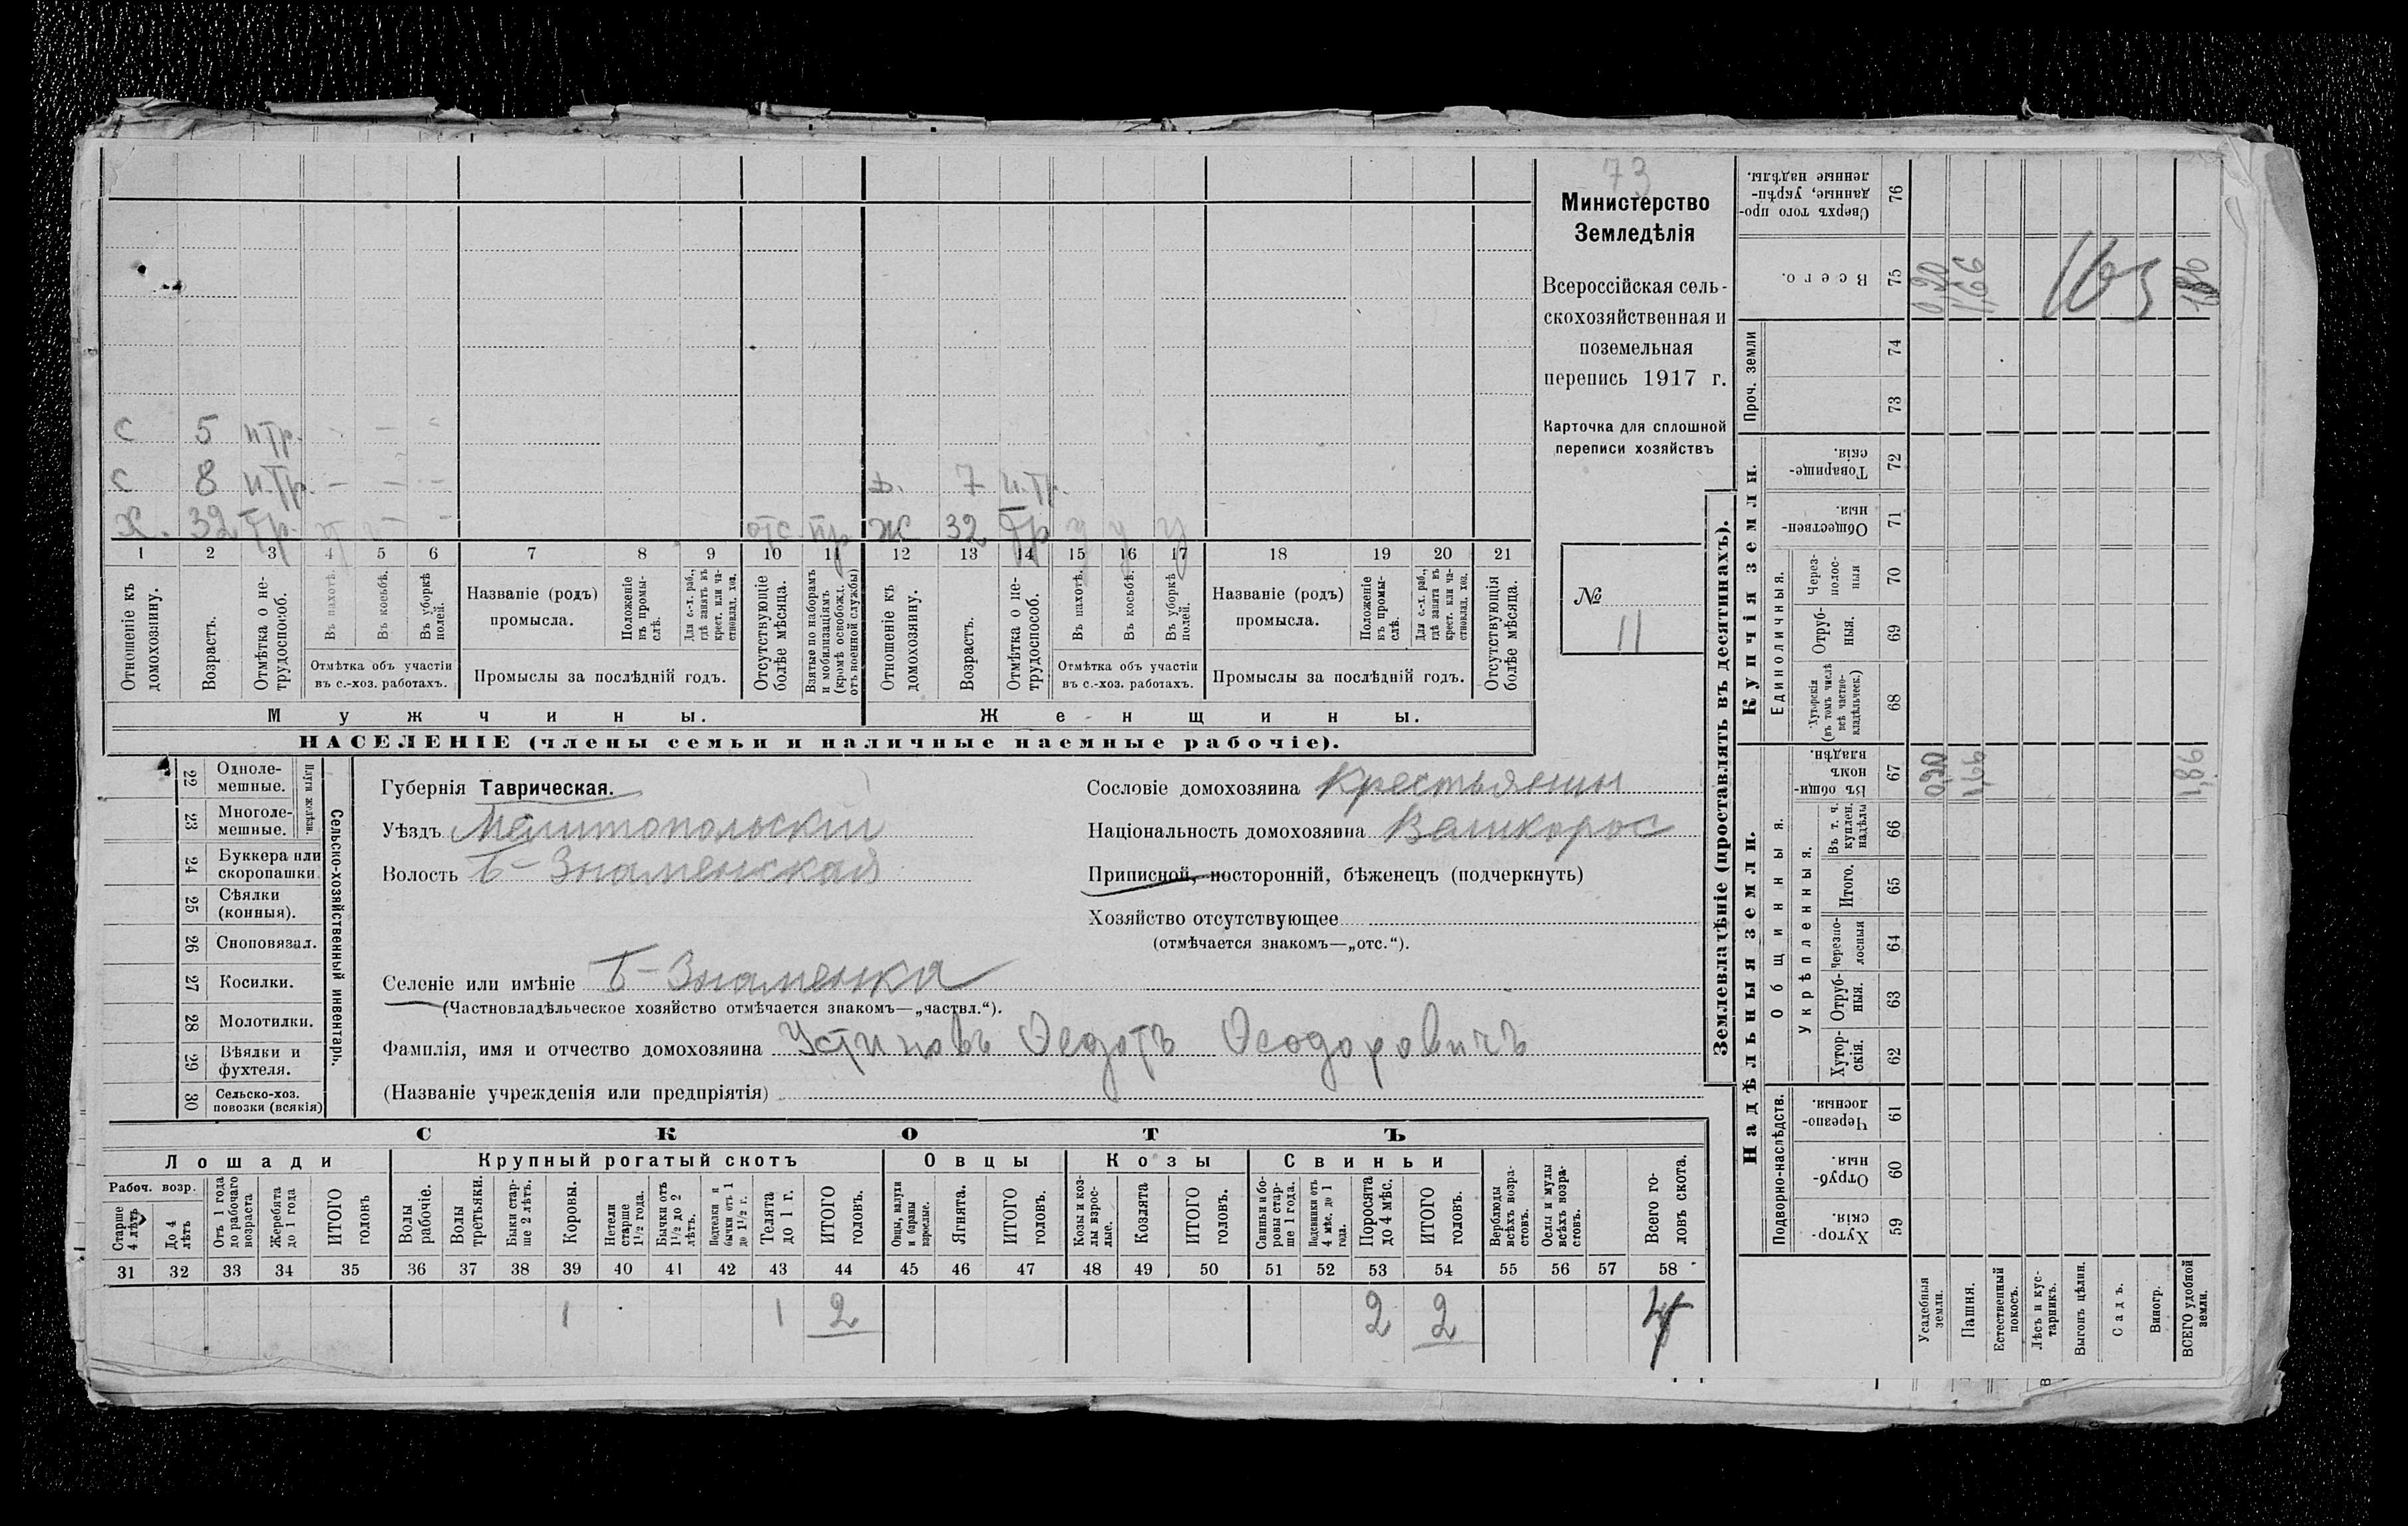 73
Министерство
Земледѣлія
Всероссійская сель-
скохозяйственная и
поземельная
перепись 1917 г.
Карточка для сплошной
переписи хозяйствъ
№
11
с 5 нтр. - - -
с 8 н.тр. - - - д. 7 н.тр.
Х. 32 тр. - - отс. пр Ж 32 тр у у у
1 2 3 4 5 6 7 8 9 10 11 12 13 14 15 16 17 18 19 20 21
Отношеніе къ домохозяину.
Возрастъ.
Отмѣтка о не-трудоспособ.
Въ пахотѣ.
Въ косьбѣ.
Въ уборкѣ полей.
Отмѣтка объ участіи
въ с.-хоз. работахъ.
Названіе (родъ)
промысла.
Положеніе въ промы-слѣ.
Для с.-х. раб., гдѣ занятъ въ крест. или ча-стновлад. хоз.
Промыслы за послѣдній годъ.
Отсутствующіе болѣе мѣсяца.
Взятые по наборамъ и мобилизаціямъ (кромѣ освобожд. отъ военной службы)
Отношеніе къ домохозяину.
Возрастъ.
Отмѣтка о не-трудоспособ.
Въ пахотѣ.
Въ косьбѣ.
Въ уборкѣ полей.
Отмѣтка объ участіи
въ с.-хоз. работахъ.
Названіе (родъ)
промысла.
Положеніе въ промы-слѣ.
Для с.-х. раб., гдѣ занята въ крест. или ча-стновлад. хоз.
Промыслы за послѣдній годъ.
Отсутствующія болѣе мѣсяца.
Мужчины. Женщины.
НАСЕЛЕНІЕ (члены семьи и наличные наемные рабочіе).
22 Одноле-мешные.
23 Многоле-мешные.
Плуги желѣзн.
24 Буккера или скоропашки
25 Сѣялки (конныя).
26 Сноповязал.
27 Косилки.
28 Молотилки.
29 Вѣялки и фухтеля.
30 Сельско-хоз. повозки (всякія)
Сельско-хозяйственный инвентарь.
Губернія Таврическая.
Уѣздъ Мелитопольскій
Волость Б-Знаменская
Селеніе или имѣніе Б-Знаменка
(Частновладѣльческое хозяйство отмѣчается знакомъ—„частвл.“).
Фамилія, имя и отчество домохозяина Устиновъ Ѳедотъ Ѳеодоровичъ
(Названіе учрежденія или предпріятія)
Сословіе домохозяина Крестьянин
Національность домохозяина Великорос
Приписной, посторонній, бѣженецъ (подчеркнуть)
Хозяйство отсутствующее
(отмѣчается знакомъ—„отс.“).
СКОТЪ
Лошади Крупный рогатый скотъ Овцы Козы Свиньи
Рабоч. возр.
Старше 4 лѣтъ
До 4 лѣтъ
Отъ 1 года до рабочаго возраста
Жеребята до 1 года
ИТОГО головъ
Волы рабочіе.
Волы третьяки.
Быки стар-ше 2 лѣтъ.
Коровы.
Нетели старше 1½ года.
Бычки отъ 1½ до 2 лѣтъ.
Подтелки и бычки отъ 1 до 1½ г.
Телята до 1 г.
ИТОГО головъ.
Овцы, валухи и бараны взрослые.
Ягнята.
ИТОГО головъ.
Козы и коз-лы взрос-лые.
Козлята
ИТОГО головъ.
Свиньи и бо-ровы стар-ше 1 года.
Подсвинки отъ 4 мѣс. до 1 года.
Поросята до 4 мѣс.
ИТОГО головъ.
Верблюды всѣхъ возра-стовъ.
Ослы и мулы всѣхъ возра-стовъ.
Всего го-ловъ скота.
31 32 33 34 35 36 37 38 39 40 41 42 43 44 45 46 47 48 49 50 51 52 53 54 55 56 57 58
1 1 2 2 2 4
Землевладѣніе (проставлять въ десятинахъ).
Надѣльныя земли. Купчія земли. Проч. земли
Подворно-наслѣдств.
Общинныя.
Укрѣпленныя.
Единоличныя.
Хутор-скія. 59
Отруб-ныя. 60
Черезпо-лосныя. 61
Хутор-скія. 62
Отруб-ныя. 63
Черезпо-лосныя 64
Итого. 65
Въ т. ч. куплен. надѣлы 66
Въ общин-номъ владѣн. 67
Хуторскія (въ томъ числѣ всѣ частно-владѣльческ.) 68
Отруб-ныя. 69
Через-полос-ныя 70
Обществен-ныя. 71
Товарище-скія. 72
73
74
Всего. 75
Сверхъ того про-данные, укрѣп-ленные надѣлы. 76
Усадебныя земли. 0,20 0,20
Пашня. 1,66 1,66
Естественный покосъ.
Лѣсъ и кус-тарникъ.
Выгонъ цѣлин.
Садъ.
Виногр.
ВСЕГО удобной земли. 1,86 1,86
163